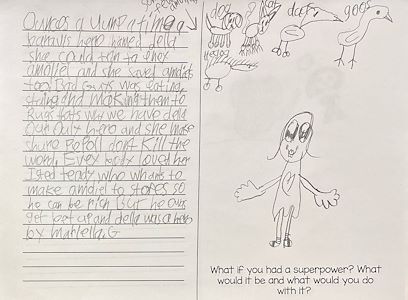 Ounces a yump a time a
hero named della
she could trn to enoy
amollel and she saved amollels
too Bad Guys was eating
sting and making them to
Rugs thats wy we have della
Our Only hero and she make
shure Pepoll dont Kill the
word. Evey body loved her
Isted tendy who whants to
make amollel to stores so
he can be rich But he owns
get bet up and della was a hero
by G
dog
duck
goos
What if you had a superpower? What
would it be and what would you do
with it?